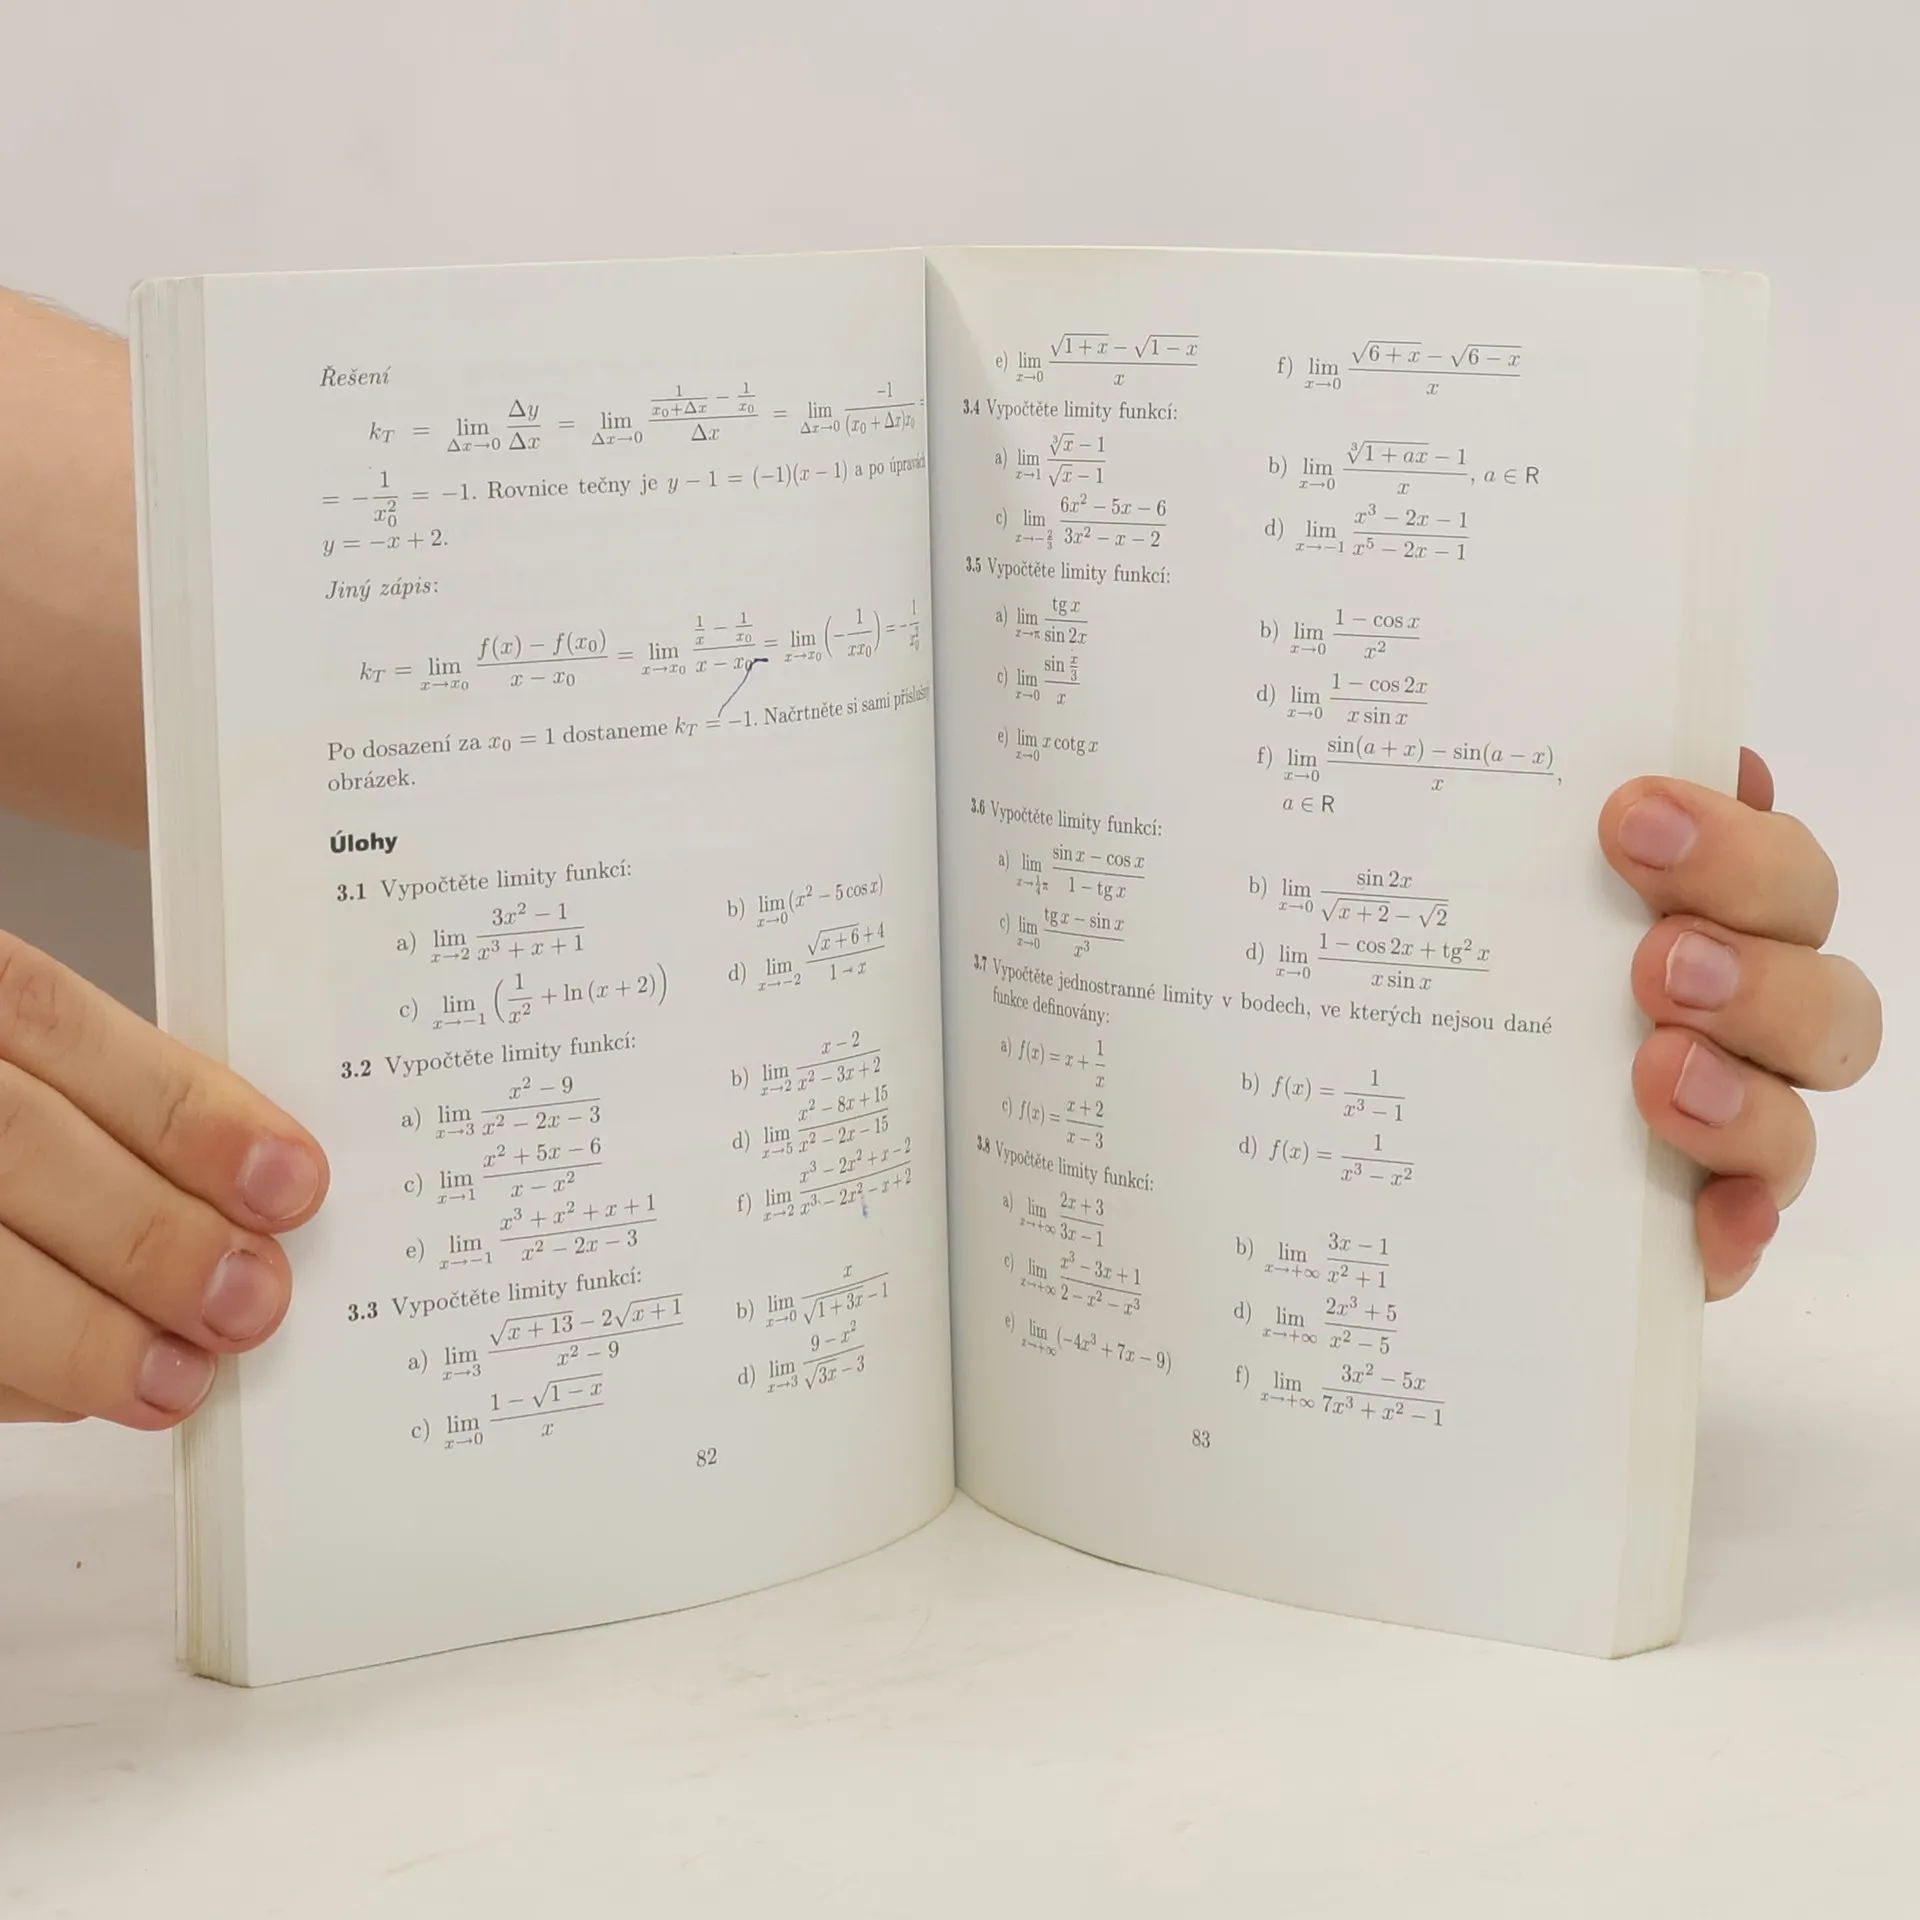 Řešení
k_T = lim_{Δx→0} Δy/Δx = lim_{Δx→0} (1/(x₀+Δx) − 1/x₀)/Δx = lim_{Δx→0} −1/((x₀ + Δx)x₀) =
= −1/x₀² = −1. Rovnice tečny je y − 1 = (−1)(x − 1) a po úpravách
y = −x + 2.
Jiný zápis:
k_T = lim_{x→x₀} (f(x) − f(x₀))/(x − x₀) = lim_{x→x₀} (1/x − 1/x₀)/(x − x₀) = lim_{x→x₀} (−1/(xx₀)) = −1/x₀²
Po dosazení za x₀ = 1 dostaneme k_T = −1. Načrtněte si sami příslušný
obrázek.
Úlohy
3.1 Vypočtěte limity funkcí:
a) lim_{x→2} (3x² − 1)/(x³ + x + 1) b) lim_{x→0} (x² − 5 cos x)
c) lim_{x→−1} (1/x² + ln (x + 2)) d) lim_{x→−2} (√(x+6) + 4)/(1 − x)
3.2 Vypočtěte limity funkcí:
a) lim_{x→3} (x² − 9)/(x² − 2x − 3) b) lim_{x→2} (x − 2)/(x² − 3x + 2)
c) lim_{x→1} (x² + 5x − 6)/(x − x²) d) lim_{x→5} (x² − 8x + 15)/(x² − 2x − 15)
e) lim_{x→−1} (x³ + x² + x + 1)/(x² − 2x − 3) f) lim_{x→2} (x³ − 2x² + x − 2)/(x³ − 2x² − x + 2)
3.3 Vypočtěte limity funkcí:
a) lim_{x→3} (√(x + 13) − 2√(x + 1))/(x² − 9) b) lim_{x→0} x/(√(1 + 3x) − 1)
c) lim_{x→0} (1 − √(1 − x))/x d) lim_{x→3} (9 − x²)/(√(3x) − 3)
82
e) lim_{x→0} (√(1 + x) − √(1 − x))/x f) lim_{x→0} (√(6 + x) − √(6 − x))/x
3.4 Vypočtěte limity funkcí:
a) lim_{x→1} (∛x − 1)/(√x − 1) b) lim_{x→0} (∛(1 + ax) − 1)/x, a ∈ R
c) lim_{x→−2/3} (6x² − 5x − 6)/(3x² − x − 2) d) lim_{x→−1} (x³ − 2x − 1)/(x⁵ − 2x − 1)
3.5 Vypočtěte limity funkcí:
a) lim_{x→π} tg x/sin 2x b) lim_{x→0} (1 − cos x)/x²
c) lim_{x→0} (sin x/3)/x d) lim_{x→0} (1 − cos 2x)/(x sin x)
e) lim_{x→0} x cotg x f) lim_{x→0} (sin(a + x) − sin(a − x))/x,
a ∈ R
3.6 Vypočtěte limity funkcí:
a) lim_{x→¼π} (sin x − cos x)/(1 − tg x) b) lim_{x→0} sin 2x/(√(x + 2) − √2)
c) lim_{x→0} (tg x − sin x)/x³ d) lim_{x→0} (1 − cos 2x + tg² x)/(x sin x)
3.7 Vypočtěte jednostranné limity v bodech, ve kterých nejsou dané
funkce definovány:
a) f(x) = x + 1/x b) f(x) = 1/(x³ − 1)
c) f(x) = (x + 2)/(x − 3) d) f(x) = 1/(x³ − x²)
3.8 Vypočtěte limity funkcí:
a) lim_{x→+∞} (2x + 3)/(3x − 1) b) lim_{x→+∞} (3x − 1)/(x² + 1)
c) lim_{x→+∞} (x³ − 3x + 1)/(2 − x² − x³) d) lim_{x→+∞} (2x³ + 5)/(x² − 5)
e) lim_{x→+∞} (−4x³ + 7x − 9) f) lim_{x→+∞} (3x² − 5x)/(7x³ + x² − 1)
83